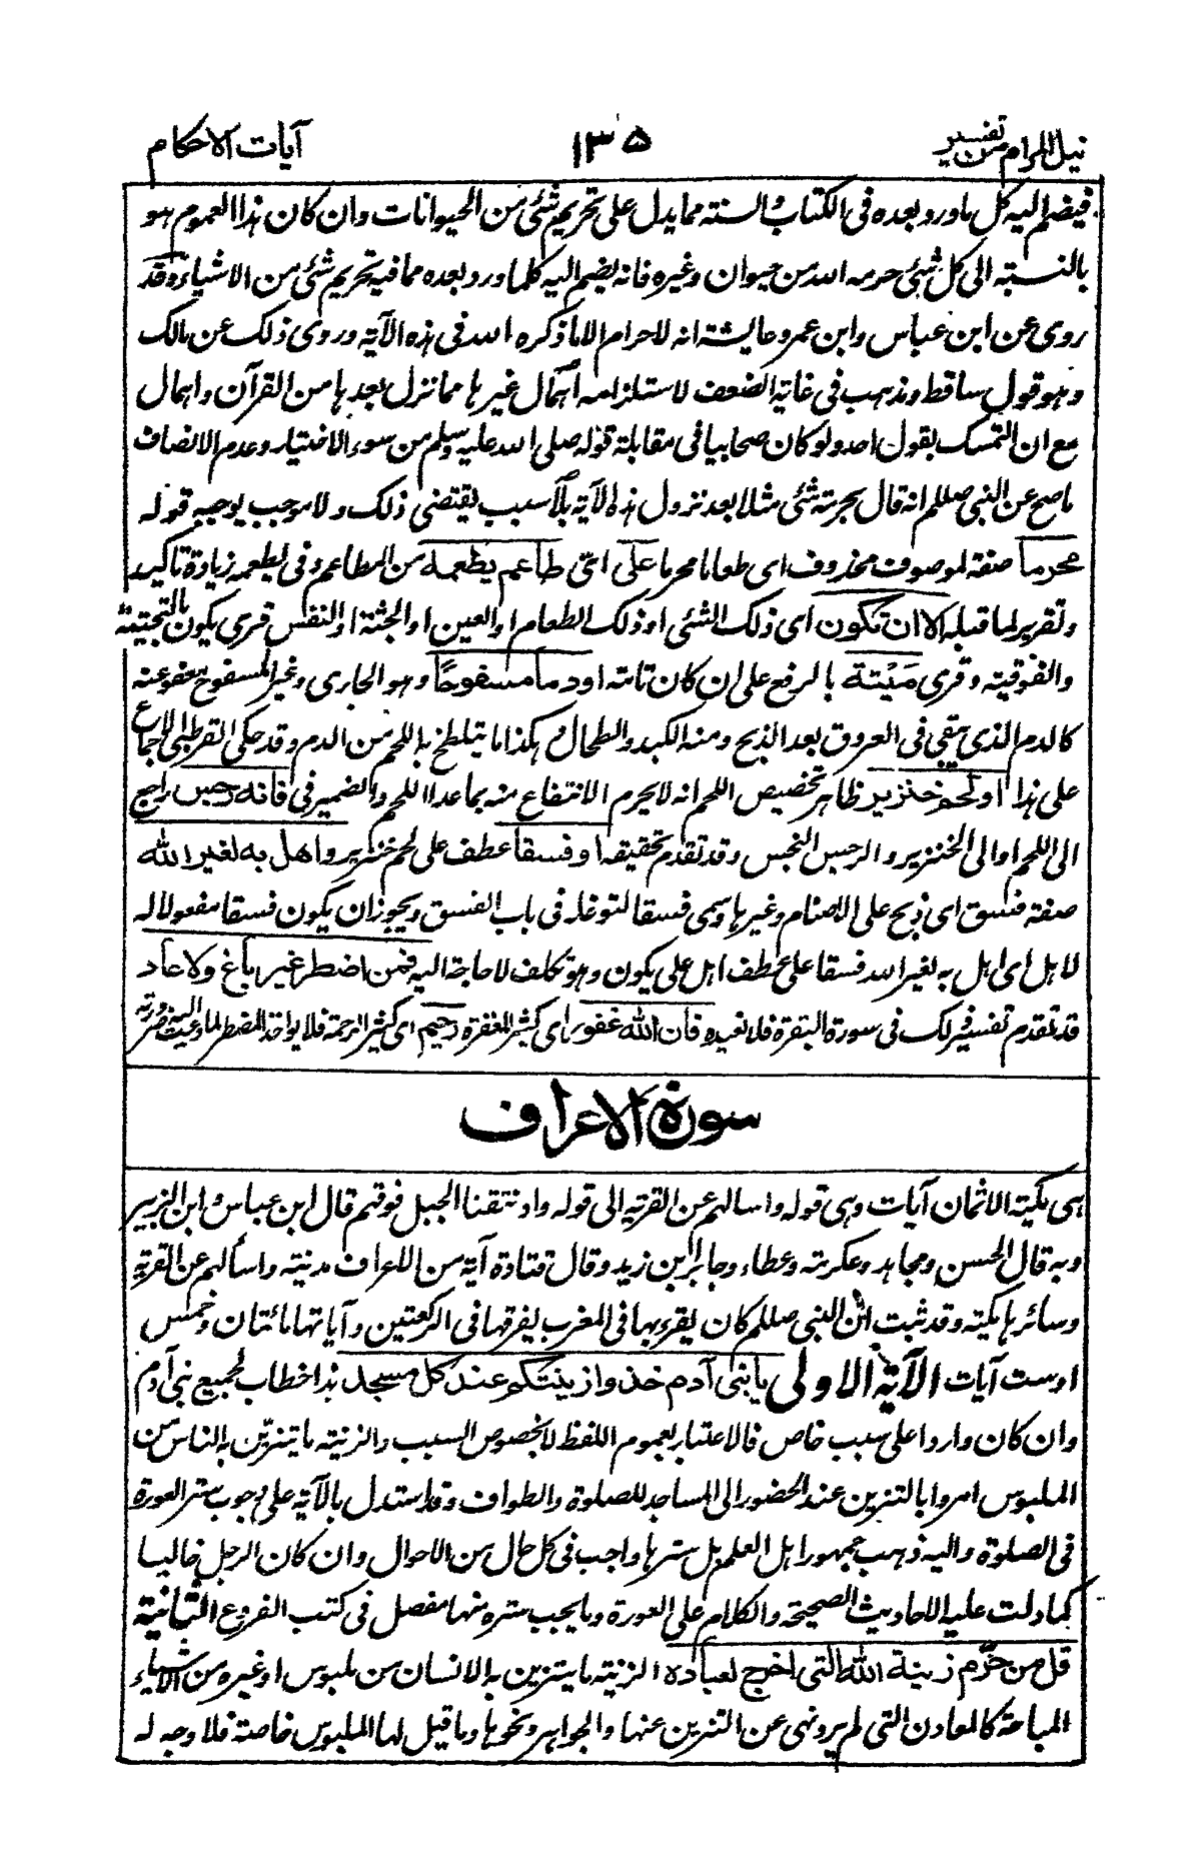 نيل المرام من تفسير
١٣٥
آيات الاحكام
فيضم اليه كل ما ورد بعده فى الكتاب والسنة مما يدل على تحريم شئ من الحيوانات وان كان هذا العموم هو
بالنسبة الى كل شئ حرمه الله من حيوان وغيره فانه يضم اليه كلما ورد بعده مما فيه تحريم شئ من الاشياء وقد
روى عن ابن عباس وابن عمر وعايشة انه لا حرام الا ما ذكره الله فى هذه الآية وروى ذلك عن مالك
وهو قول ساقط ومذهب فى غاية الضعف لاستلزامه اهمال غيرها مما نزل بعدها من القرآن واهمال
مع ان التمسك بقول احد ولو كان صحابيا فى مقابلة قوله صلى الله عليه وسلم من سوء الاختيار وعدم الانصاف
ما صح عن النبى صللم انه قال بحرمة شئ مثلا بعد نزول هذه الآية بلا سبب يقتضى ذلك ولا موجب يوجبه قوله
محرما صفة لموصوف محذوف اى طعاما محرما على اى طاعم يطعمه من المطاعم وفى يطعمه زيادة تاكيد
وتقرير لما قبله الا ان تكون اى ذلك الشئ او ذلك الطعام او العين او الجثة او النفس قرى يكون بالتحتية
والفوقية وقرى ميتة بالرفع على ان كان تامة او دما مسفوحا وهو الجارى وغير المسفوح معفو عنه
كالدم الذى يبقى فى العروق بعد الذبح ومنه الكبد والطحال وهكذا ما يتلطخ به اللحم من الدم وقد حكى القرطبى الاجماع
على هذا او لحم خنزير ظاهر تخصيص اللحم انه لا يحرم الانتفاع منه بما عدا اللحم والضمير فى فانه رجس راجع
الى اللحم او الى الخنزير والرجس النجس وقد تقدم تحقيقه او فسقا عطف على لحم خنزير واهل به لغير الله
صفة فسق اى ذبح على الاصنام وغيرها وسمى فسقا لتوغله فى باب الفسق ويجوز ان يكون فسقا مفعولا له
لاهل اى اهل به لغير الله فسقا على عطف اهل على يكون وهو تكلف لا حاجة اليه فمن اضطر غير باغ ولا عاد
قد تقدم تفسير ذلك فى سورة البقرة فلا نعيده فان الله غفور اى كثير المغفرة رحيم اى كثير الرحمة فلا يواخذ المضطر لما دعت اليه ضرورته
سورة الاعراف
هى مكية الا ثمان آيات وهى قوله واسالهم عن القرية الى قوله واذ نتقنا الجبل فوقهم قال ابن عباس وابن الزبير
وبه قال الحسن ومجاهد وعكرمة وعطاء وجابر ابن زيد وقال قتادة آية من الاعراف مدنية واسألهم عن القرية
وسائرها مكية وقد ثبت ان النبى صللم كان يقرء بها فى المغرب يفرقها فى الركعتين وآياتها مائتان وخمس
او ست آيات الآية الاولى يا بنى آدم خذوا زينتكم عند كل مسجد هذا خطاب لجميع بنى آدم
وان كان واردا على سبب خاص فالاعتبار بعموم اللفظ لا بخصوص السبب والزينة ما يتزين به الناس من
الملبوس امروا بالتزين عند الحضور الى المساجد للصلوة والطواف وقد استدل بالآية على وجوب ستر العورة
فى الصلوة واليه ذهب جمهور اهل العلم بل سترها واجب فى كل حال من الاحوال وان كان الرجل خاليا
كما دلت عليه الاحاديث الصحيحة والكلام على العورة وما يجب ستره منها مفصل فى كتب الفروع الثانية
قل من حرم زينة الله التى اخرج لعباده الزينة ما يتزين به الانسان من ملبوس او غيره من الاشياء
المباحة كالمعادن التى لم يرد نهى عن التزين عنها والجواهر ونحوها وما قيل لها الملبوس خاصة فلا وجه له